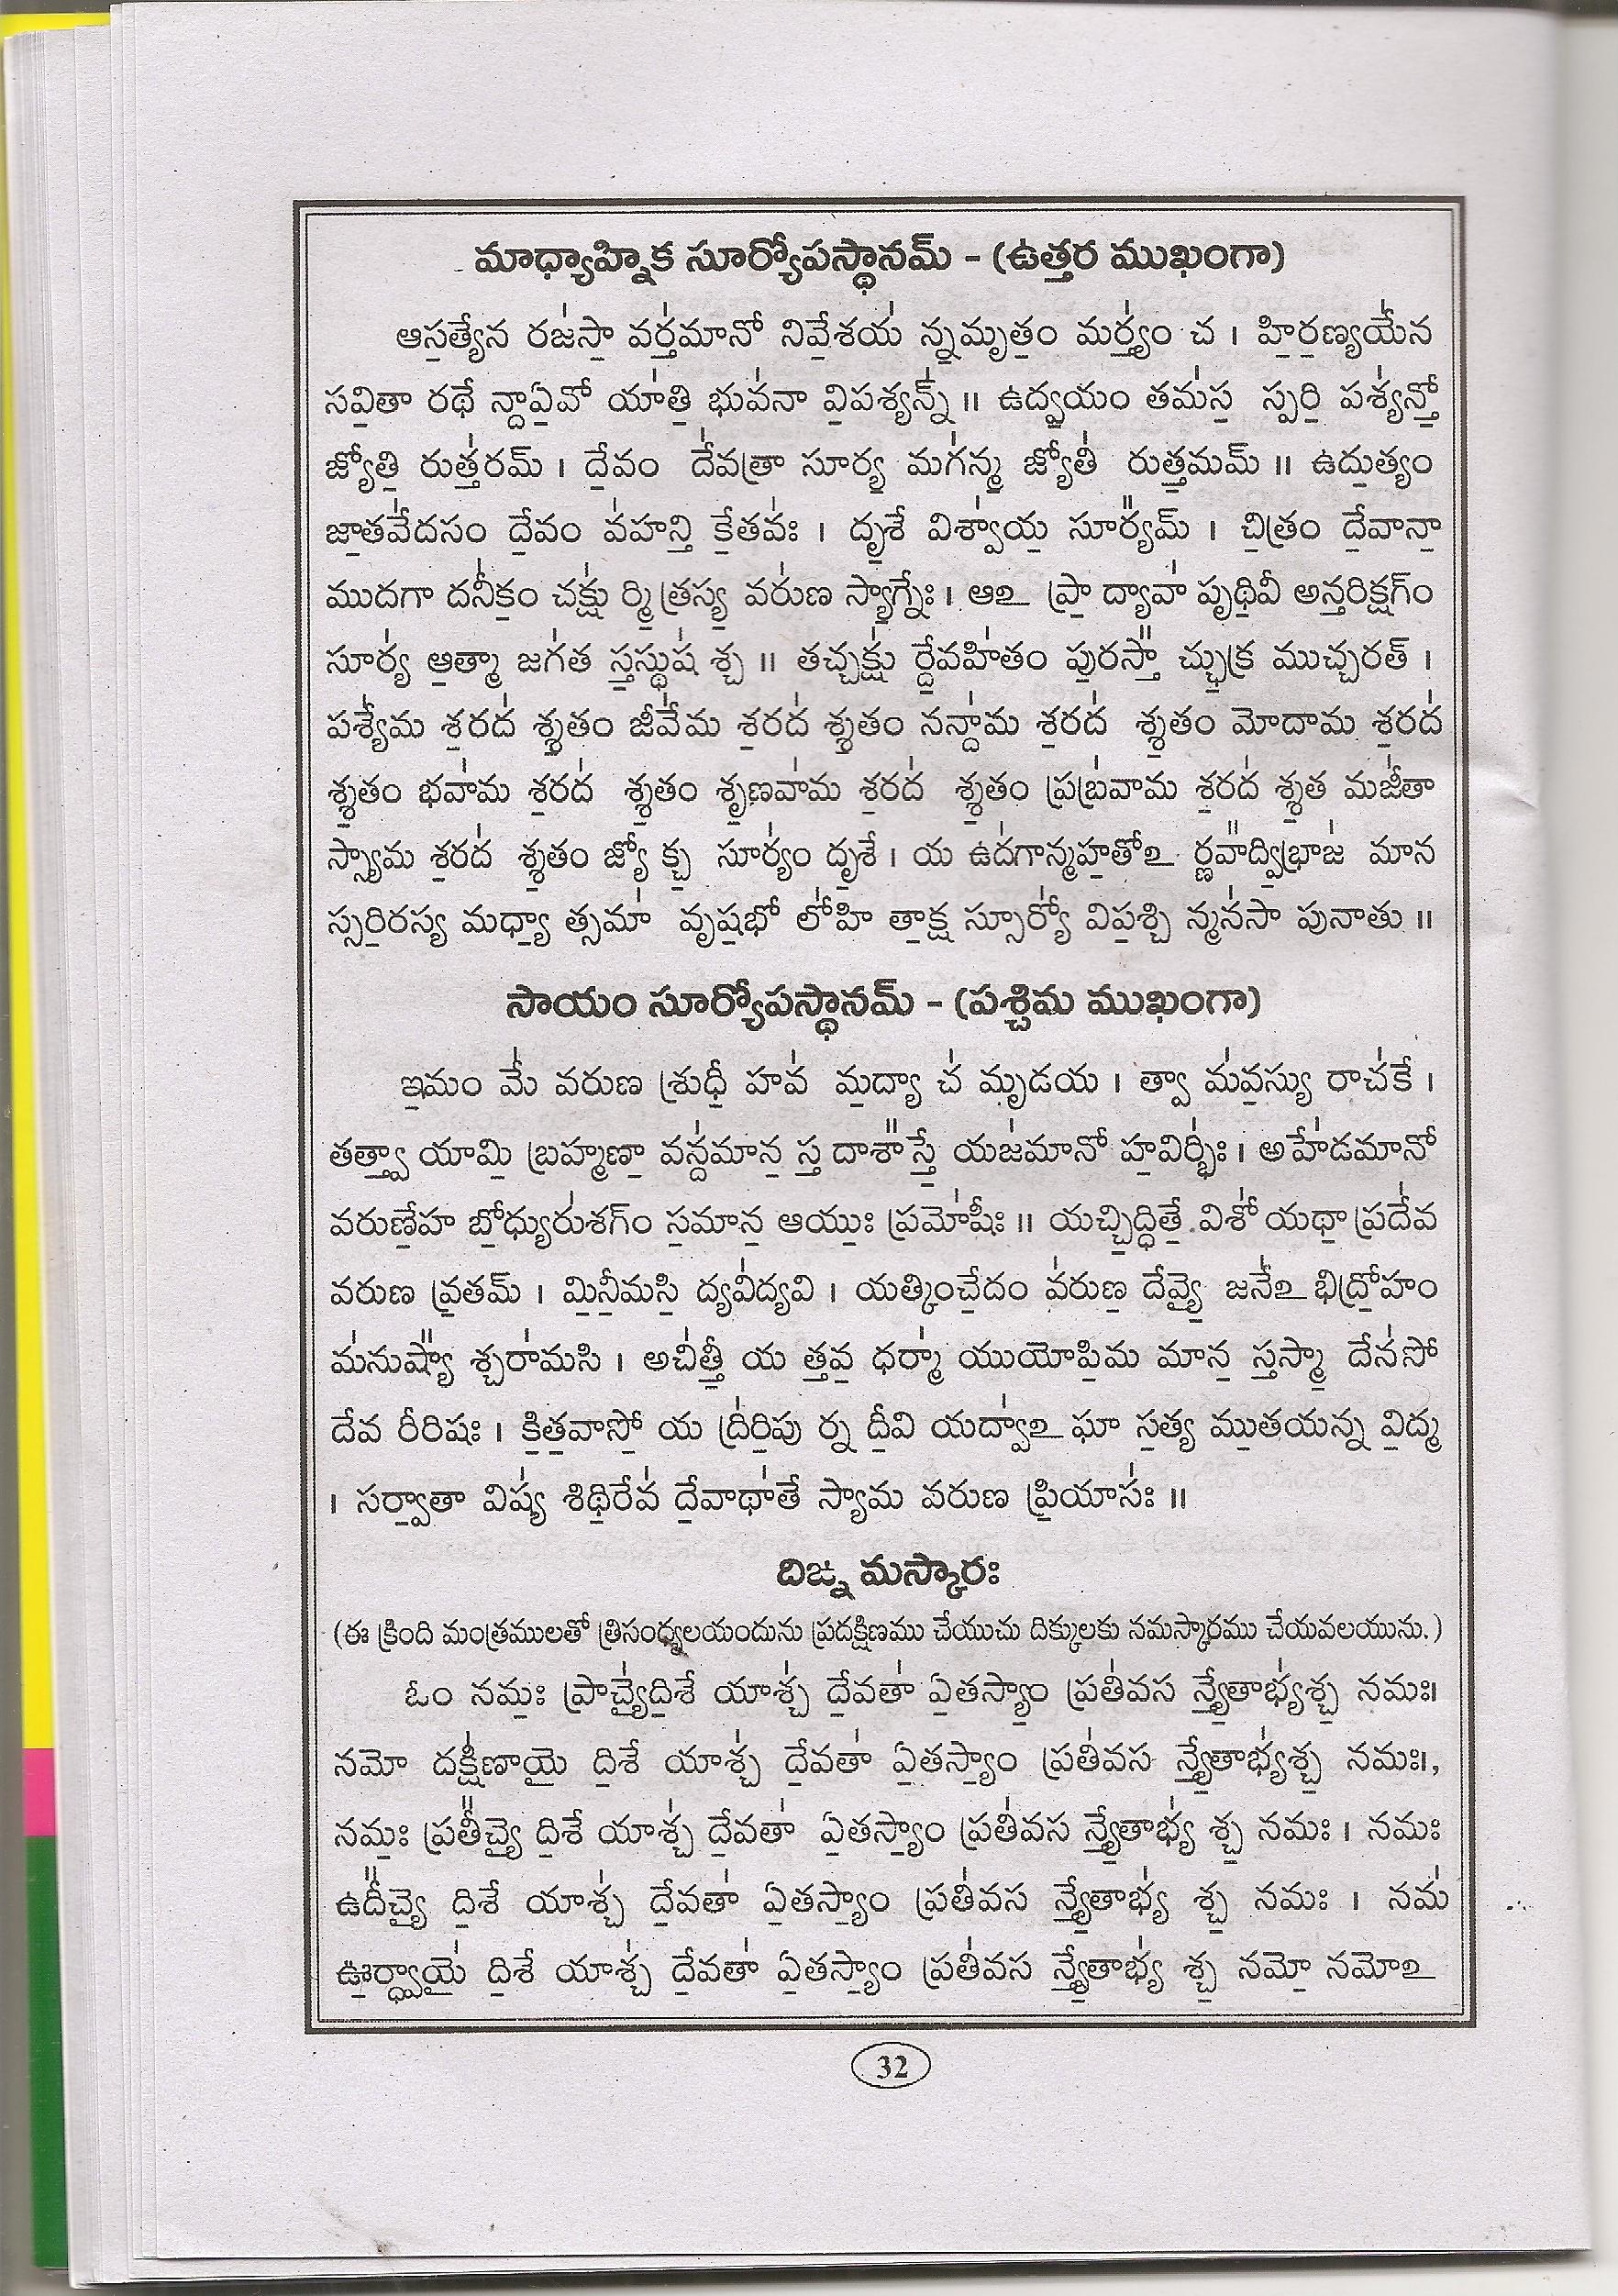 మాధ్యాహ్నిక సూర్యోపస్థానమ్ - (ఉత్తర ముఖంగా)
ఆస॒త్యేన రజ॑సా॒ వర్త॑మానో నివే॒శయ॑ న్న॒మృత॒ం మర్త్య॑ం చ । హి॒ర॒ణ్యయే॑న
సవి॒తా రథే న్దా॒ఏ॒వో యా॑తి॒ భువ॑నా వి॒పశ్య॑న్న్ ॥ ఉద్వ॒యం తమ॑స॒ స్పరి॒ పశ్య॑న్తో॒
జ్యోతి॒ రుత్త॑రమ్ । దే॒వం దే॑వత్రా సూర్య॒ మగ॑న్మ॒ జ్యోతి॑ రుత్త॒మమ్ ॥ ఉదు॒త్యం
జా॒తవే॑దసం దే॒వం వ॑హన్తి॒ కే॒తవ॑ః । దృ॒శే విశ్వా॑య॒ సూర్య॑మ్ । చి॒త్రం దే॒వానా॒
ముదగా దనీ॑క॒ం చక్షు॑ ర్మి॒త్రస్య॒ వరు॑ణ స్యా॒గ్నేః । ఆఽ ప్రా॒ ద్యావా॑ పృథి॒వీ అన్త॒రిక్షగ్ం
సూర్య॑ ఆ॒త్మా జగ॑త స్త॒స్థుష॑ శ్చ ॥ తచ్చక్షు॑ ర్దే॒వహి॑తం పు॒రస్తా॑ చ్ఛు॒క్ర ముచ్చరత్ ।
పశ్యే॑మ శ॒రద॑ శ్శ॒తం జీవే॑మ శ॒రద॑ శ్శ॒తం నన్దా॑మ శ॒రద॑ శ్శ॒తం మోదామ శ॒రద॑
శ్శ॒తం భవా॑మ శ॒రద॑ శ్శ॒తం శృ॒ణవా॑మ శ॒రద॑ శ్శ॒తం ప్రబ్ర॑వామ శ॒రద॑ శ్శ॒త మజీ॑తా
స్స్యామ శ॒రద॑ శ్శ॒తం జ్యో క్చ॒ సూర్య॑ం దృ॒శే । య ఉద॑గాన్మహ॒తోఽ ర్ణవా॑ద్వి॒భ్రాజ॑ మాన
స్సరి॒రస్య మధ్యా॒ త్సమా॑ వృష॒భో లో॑హి తా॒క్ష స్సూర్యో॑ విప॒శ్చి న్మన॑సా పునాతు ॥
సాయం సూర్యోపస్థానమ్ - (పశ్చిమ ముఖంగా)
ఇ॒మం మే॑ వరుణ శ్రుధీ॒ హవ॑ మ॒ద్యా చ॑ మృడయ । త్వా మ॑వ॒స్యు రాచ॑కే ।
తత్త్వా॒ యామి॒ బ్రహ్మణా॒ వన్ద॑మాన॒ స్త దాశా॑స్తే॒ యజ॑మానో హ॒విర్భి॑ః । అహే॑డమానో
వరుణే॒హ బో॒ధ్యురు॑శగ్ం స॒మాన॒ ఆయు॒ః ప్రమో॑షీః ॥ యచ్చి॒ద్ధితే॒ విశో॑ యథా॒ ప్రదే॑వ
వరుణ వ్ర॒తమ్ । మి॒నీ॒మసి॒ ద్యవి॑ద్యవి । యత్కించే॒దం వ॑రుణ॒ దేవ్యై॒ జనే॑ఽ భిద్రో॒హం
మ॑నుష్యా॑ శ్చరా॑మసి । అచి॑త్తీ॒ య త్తవ॒ ధర్మా॑ యుయోపి॒మ మాన॒ స్తస్మా॒ దేన॑సో
దేవ రీరిషః । కి॒త॒వాసో॒ య ద్రి॑రి॒పు ర్న దీ॒వి యద్వా॑ఽ ఘా స॒త్య ము॒తయన్న వి॒ద్మ
। సర్వా॒తా విష్య॑ శిథి॒రేవ॑ దే॒వాథా॑తే స్యామ వరుణ ప్రి॒యాస॑ః ॥
దిఙ్న మస్కారః
(ఈ క్రింది మంత్రములతో త్రిసంధ్యలయందును ప్రదక్షిణము చేయుచు దిక్కులకు నమస్కారము చేయవలయును.)
ఓం నమ॒ః ప్రాచ్యై॑ది॒శే యాశ్చ॑ దే॒వతా॑ ఏ॒తస్యా॒ం ప్రతి॑వస న్త్యే॒తాభ్య॑శ్చ॒ నమః।
నమో దక్షి॑ణాయై ది॒శే యాశ్చ॑ దే॒వతా॑ ఏ॒తస్యా॒ం ప్రతి॑వస న్త్యే॒తాభ్య॑శ్చ॒ నమః।,
నమ॒ః ప్రతీ॑చ్యై ది॒శే యాశ్చ॑ దే॒వతా॑ ఏ॒తస్యా॒ం ప్రతి॑వస న్త్యే॒తాభ్య॑ శ్చ॒ నమః । నమః
ఉదీ॑చ్యై ది॒శే యాశ్చ॑ దే॒వతా॑ ఏ॒తస్యా॒ం ప్రతి॑వస న్త్యే॒తాభ్య॑ శ్చ॒ నమః । నమ॑
ఊ॒ర్ధ్వాయై॑ ది॒శే యాశ్చ॑ దే॒వతా॑ ఏ॒తస్యా॒ం ప్రతి॑వస న్త్యే॒తాభ్య॑ శ్చ॒ నమో॒ నమోఽ
32